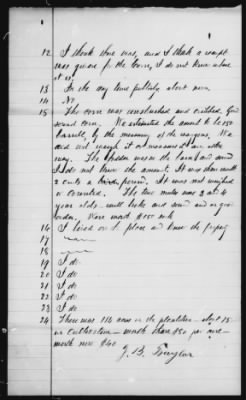 12. I think there was, and I think a receipt
was given for the Corn, I do not know about
it.
13. In the day time publicly about noon
14. No
15. The corn was unshucked and cribbed. Good
sound corn. We estimated the amount to be 150
barrels, by the measuring of the wagons. We
did not weigh it or measure it any other
way. The fodder was in the barn and
I do not know the amount. It was there worth
2 cents a pound. It was not weighed
or Counted. The two mules was 2 and
year olds, well broke and sound and in good
order. Were worth $150 each
16. I lived on the place and knew the property
17
18
19 I do
20 I do
21 I do
22 I do
23 I do
24 There was 116 acres in the plantation about 75
in Cultivation worth then $50 per acre
worth now $40
J. B. Taylor